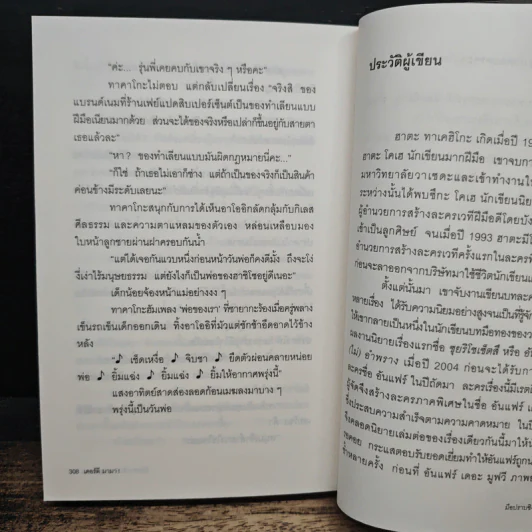 "ค่ะ... รุ่นพี่เคยคบกับเขาจริง ๆ หรือคะ"
ทาคาโกะไม่ตอบ แต่กลับเปลี่ยนเรื่อง "จริงสิ ของ
แบรนด์เนมที่ร้านเฟย์แปดสิบเปอร์เซ็นต์เป็นของทำเลียนแบบ
ฝีมือเนียนมากด้วย ส่วนจะได้ของจริงหรือเปล่าก็ขึ้นอยู่กับสายตา
เธอแล้วละ"
"หา? ของทำเลียนแบบมันผิดกฎหมายนี่คะ..."
"ก็ใช่ ถ้าเธอไม่เอาก็ช่าง แต่ถ้าเป็นของจริงก็เป็นสินค้า
ค่อนข้างมีระดับเลยนะ"
ทาคาโกะสนุกกับการได้เห็นอาโออิกลัดกลุ้มกับกิเลส
ศีลธรรม และความตาแหลมของตัวเอง หล่อนเหลือบมอง
ใบหน้าลูกชายผ่านฝาครอบกันน้ำ
"แต่ได้เจอกันแวบหนึ่งก่อนหน้าวันพ่อก็คงดีมั้ง ถึงจะโง่
งี่เง่าไร้มนุษยธรรม แต่ยังไงก็เป็นพ่อของฮาชิโซอยู่ดีเนอะ"
เด็กน้อยจ้องหน้าแม่อย่างงง ๆ
ทาคาโกะฮัมเพลง 'พ่อของเรา' ที่ซายากะร้องเมื่อครู่พลาง
เข็นรถเข็นเด็กออกเดิน ทิ้งอาโออิที่มัวแต่ชักช้าอืดอาดไว้ข้าง
หลัง
"♪ เช็ดเหงื่อ ♪ จิบชา ♪ ยืดตัวผ่อนคลายหน่อย
พ่อ ♪ ยิ้มแฉ่ง ♪ ยิ้มแฉ่ง ♪ ยิ้มให้อากาศพรุ่งนี้"
แสงอาทิตย์สาดส่องลอดก้อนเมฆลงมาบาง ๆ
พรุ่งนี้เป็นวันพ่อ
306
ประวัติผู้เขียน
ฮาตะ ทาเคฮิโกะ เกิดเมื่อปี 1
ฮาตะ โคเฮ นักเขียนมากฝีมือ เขาจบกา
มหาวิทยาลัยวาเซดะและเข้าทำงานใน
ระหว่างนั้นได้พบชีกะ โคเฮ นักเขียนนิย
ผู้อำนวยการสร้างละครเวทีฝีมือดีโดยบัง
เข้าเป็นลูกศิษย์ จนเมื่อปี 1993 ฮาตะมี
อำนวยการสร้างละครเวทีครั้งแรกในละคร
ก่อนจะลาออกจากบริษัทมาใช้ชีวิตนักเขียน
ตั้งแต่นั้นมา เขาจับงานเขียนบทละ
หลายเรื่อง ได้รับความนิยมอย่างสูงจนเป็นที่รู้จัก
ให้เขากลายเป็นหนึ่งในนักเขียนบทมือทองของว
ผลงานนิยายเรื่องแรกชื่อ
(ไม่) อำพราง เมื่อปี 2004 ก่อนจะได้รับการ
ละคร ชื่อ อันแฟร์ ในปีถัดมา ละครเรื่องนี้มีเรต
ผู้จัดจึงสร้างละครภาคพิเศษในชื่อ อันแฟร์
ซึ่งประสบความสำเร็จตามความคาดหมาย ในปี
จึงคลอดนิยายเล่มต่อของเรื่องเดียวกันนี้มาให้น
รอคอย กระแสตอบรับยอดเยี่ยมทำให้อันแฟร์ถูกน
ซ้ำหลายครั้ง ก่อนที่ อันแฟร์ เดอะ มูฟวี่ ภาพย